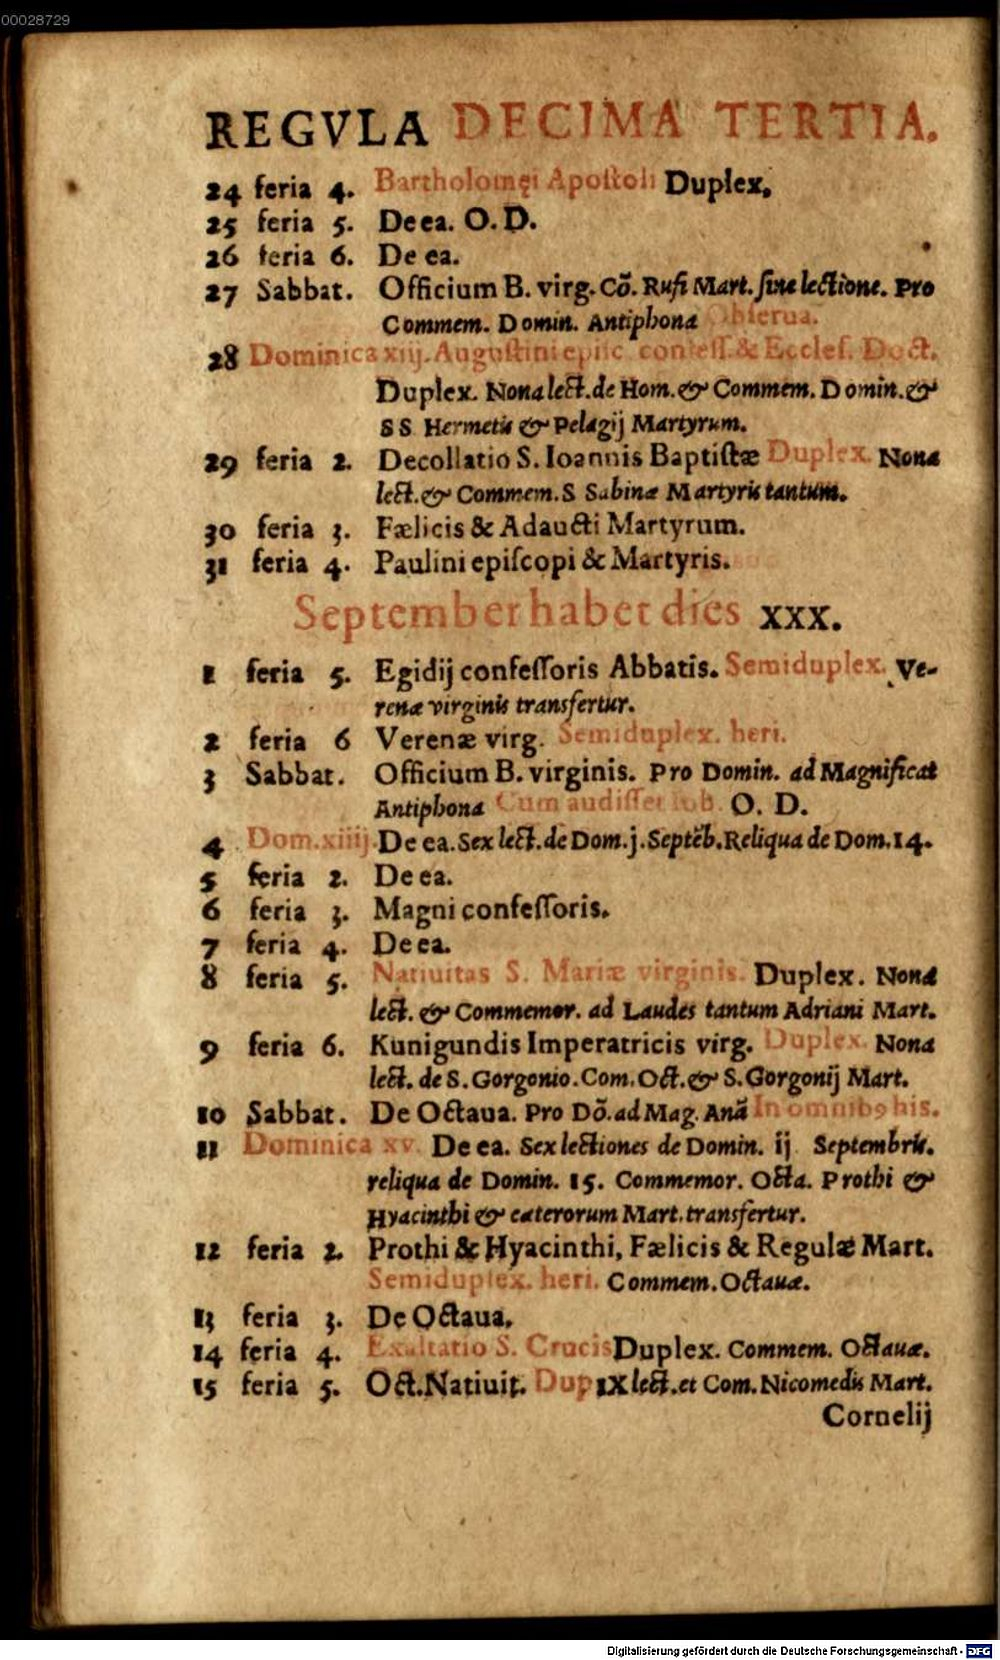 00028729
REGVLA DECIMA TERTIA.
24 feria 4. Bartholomęi Apoſtoli Duplex.
25 feria 5. De ea. O. D.
26 feria 6. De ea.
27 Sabbat. Officium B. virg. Cõ. Rufi Mart. ſine lectione. Pro
Commem. Domin. Antiphona Obſerua.
28 Dominica xiij. Auguſtini epiſc. confeſſ. & Eccleſ. Doct.
Duplex. Nona lect. de Hom. & Commem. Domin. &
SS Hermetis & Pelagij Martyrum.
29 feria 2. Decollatio S. Ioannis Baptiſtæ Duplex. Nona
lect. & Commem. S Sabinæ Martyris tantum.
30 feria 3. Fælicis & Adaucti Martyrum.
31 feria 4. Paulini epiſcopi & Martyris.
September habet dies XXX.
1 feria 5. Egidij confeſſoris Abbatis. Semiduplex. Ve-
renæ virginis transfertur.
2 feria 6 Verenæ virg. Semiduplex. heri.
3 Sabbat. Officium B. virginis. Pro Domin. ad Magnificat
Antiphona Cum audiſſet Iob. O. D.
4 Dom. xiiij. De ea. Sex lect. de Dom. j. Septẽb. Reliqua de Dom. 14.
5 feria 2. De ea.
6 feria 3. Magni confeſſoris.
7 feria 4. De ea.
8 feria 5. Natiuitas S. Mariæ virginis. Duplex. Nona
lect. & Commemor. ad Laudes tantum Adriani Mart.
9 feria 6. Kunigundis Imperatricis virg. Duplex. Nona
lect. de S. Gorgonio. Com. Oct. & S. Gorgonij Mart.
10 Sabbat. De Octaua. Pro Dõ. ad Mag. Anã In omnibꝰ his.
11 Dominica xv. De ea. Sex lectiones de Domin. ij Septembris.
reliqua de Domin. 15. Commemor. Octa. Prothi &
Hyacinthi & cæterorum Mart. transfertur.
12 feria 2. Prothi & Hyacinthi, Fælicis & Regulæ Mart.
Semiduplex. heri. Commem. Octauæ.
13 feria 3. De Octaua.
14 feria 4. Exaltatio S. Crucis Duplex. Commem. Octauæ.
15 feria 5. Oct. Natiuit. Dup IX lect. et Com. Nicomedis Mart.
Cornelij
Digitalisierung gefördert durch die Deutsche Forschungsgemeinschaft - DFG